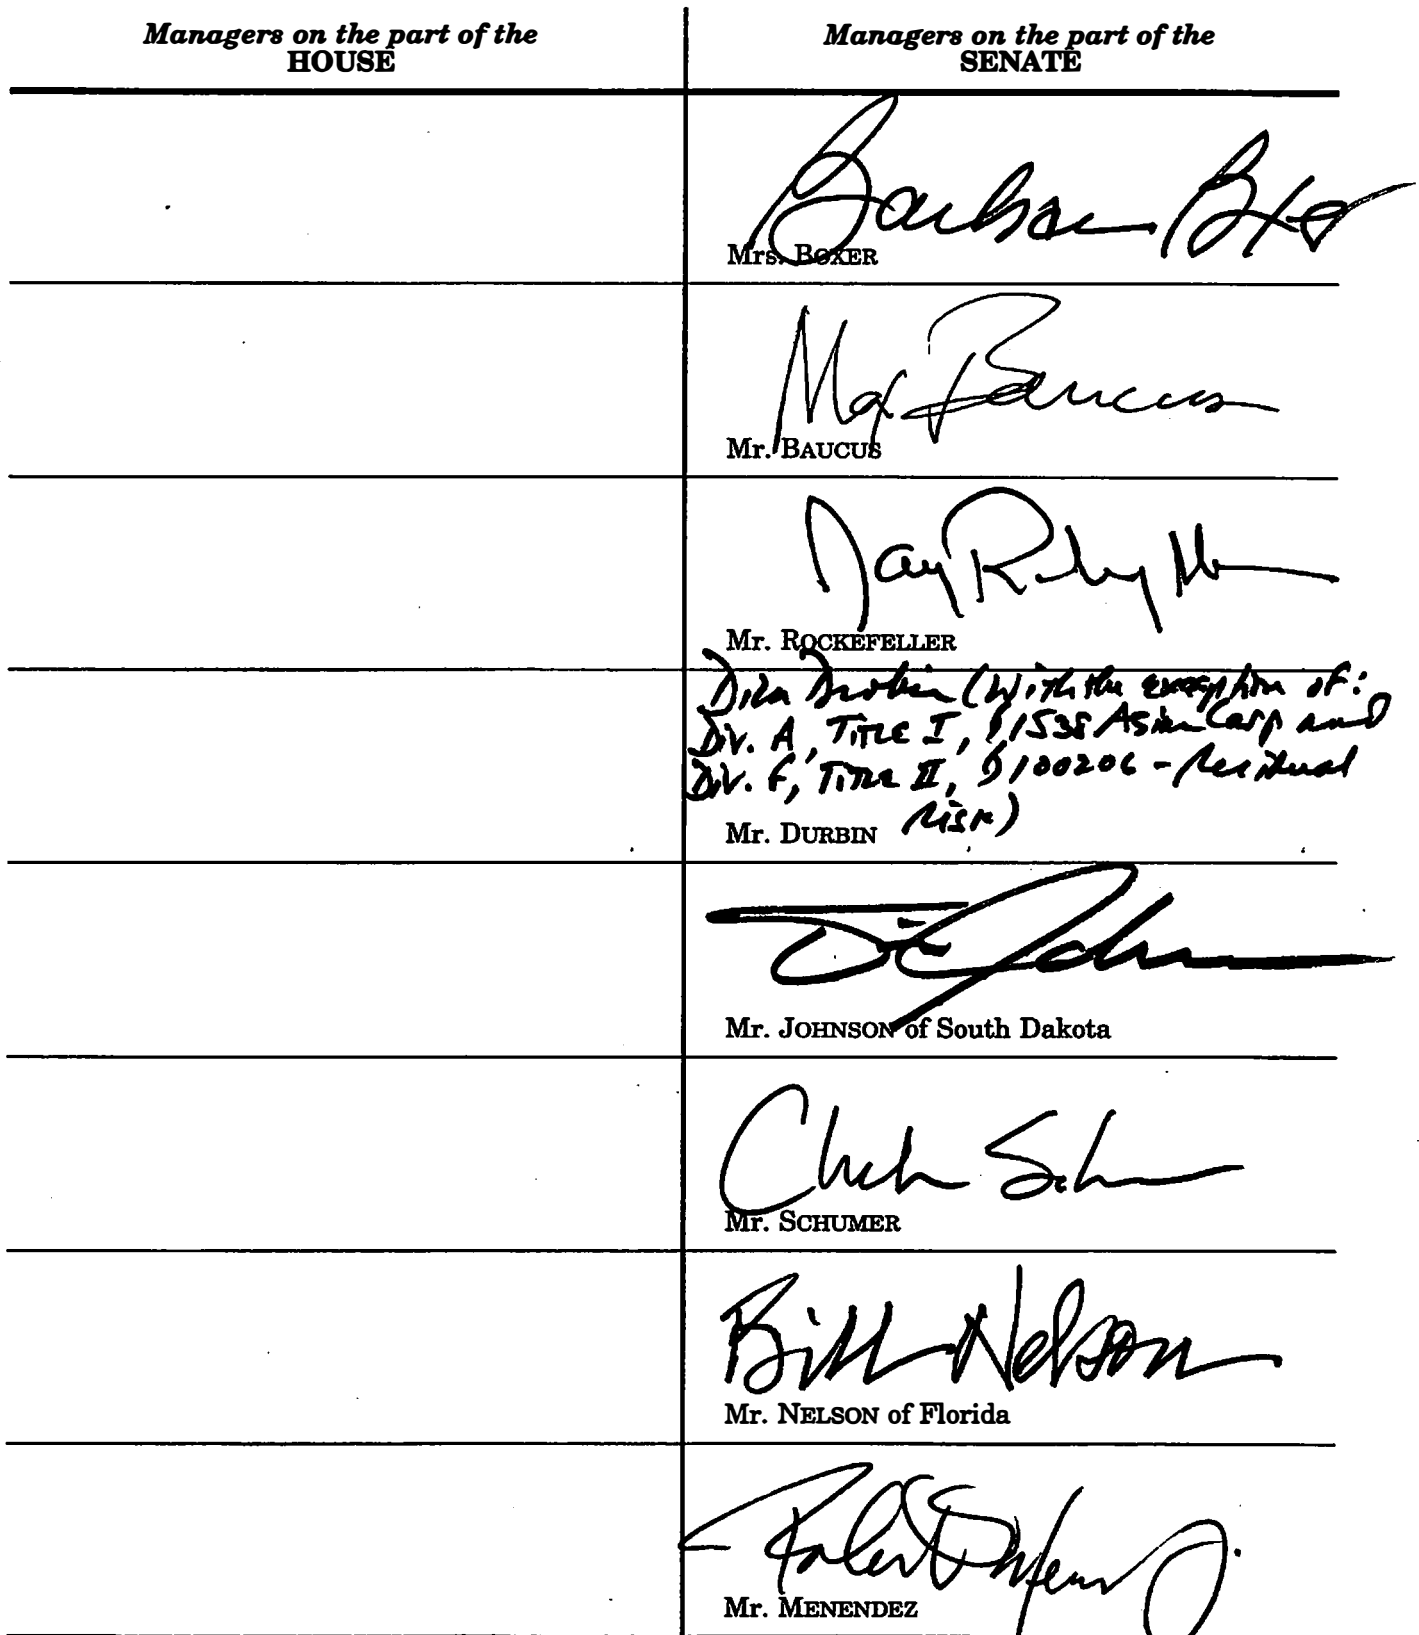 Managers on the part of the
HOUSE
Managers on the part of the
SENATE
Barbara Boxer
Mrs. BOXER
Max Baucus
Mr. BAUCUS
Jay Rockefeller
Mr. ROCKEFELLER
Dick Durbin (with the exception of:
Div. A, TITLE I, §1538 Asian Carp and
Div. F, TITLE II, §100206 - Residual
risk)
Mr. DURBIN
Tim Johnson
Mr. JOHNSON of South Dakota
Chuck Schumer
Mr. SCHUMER
Bill Nelson
Mr. NELSON of Florida
Robert Menendez
Mr. MENENDEZ